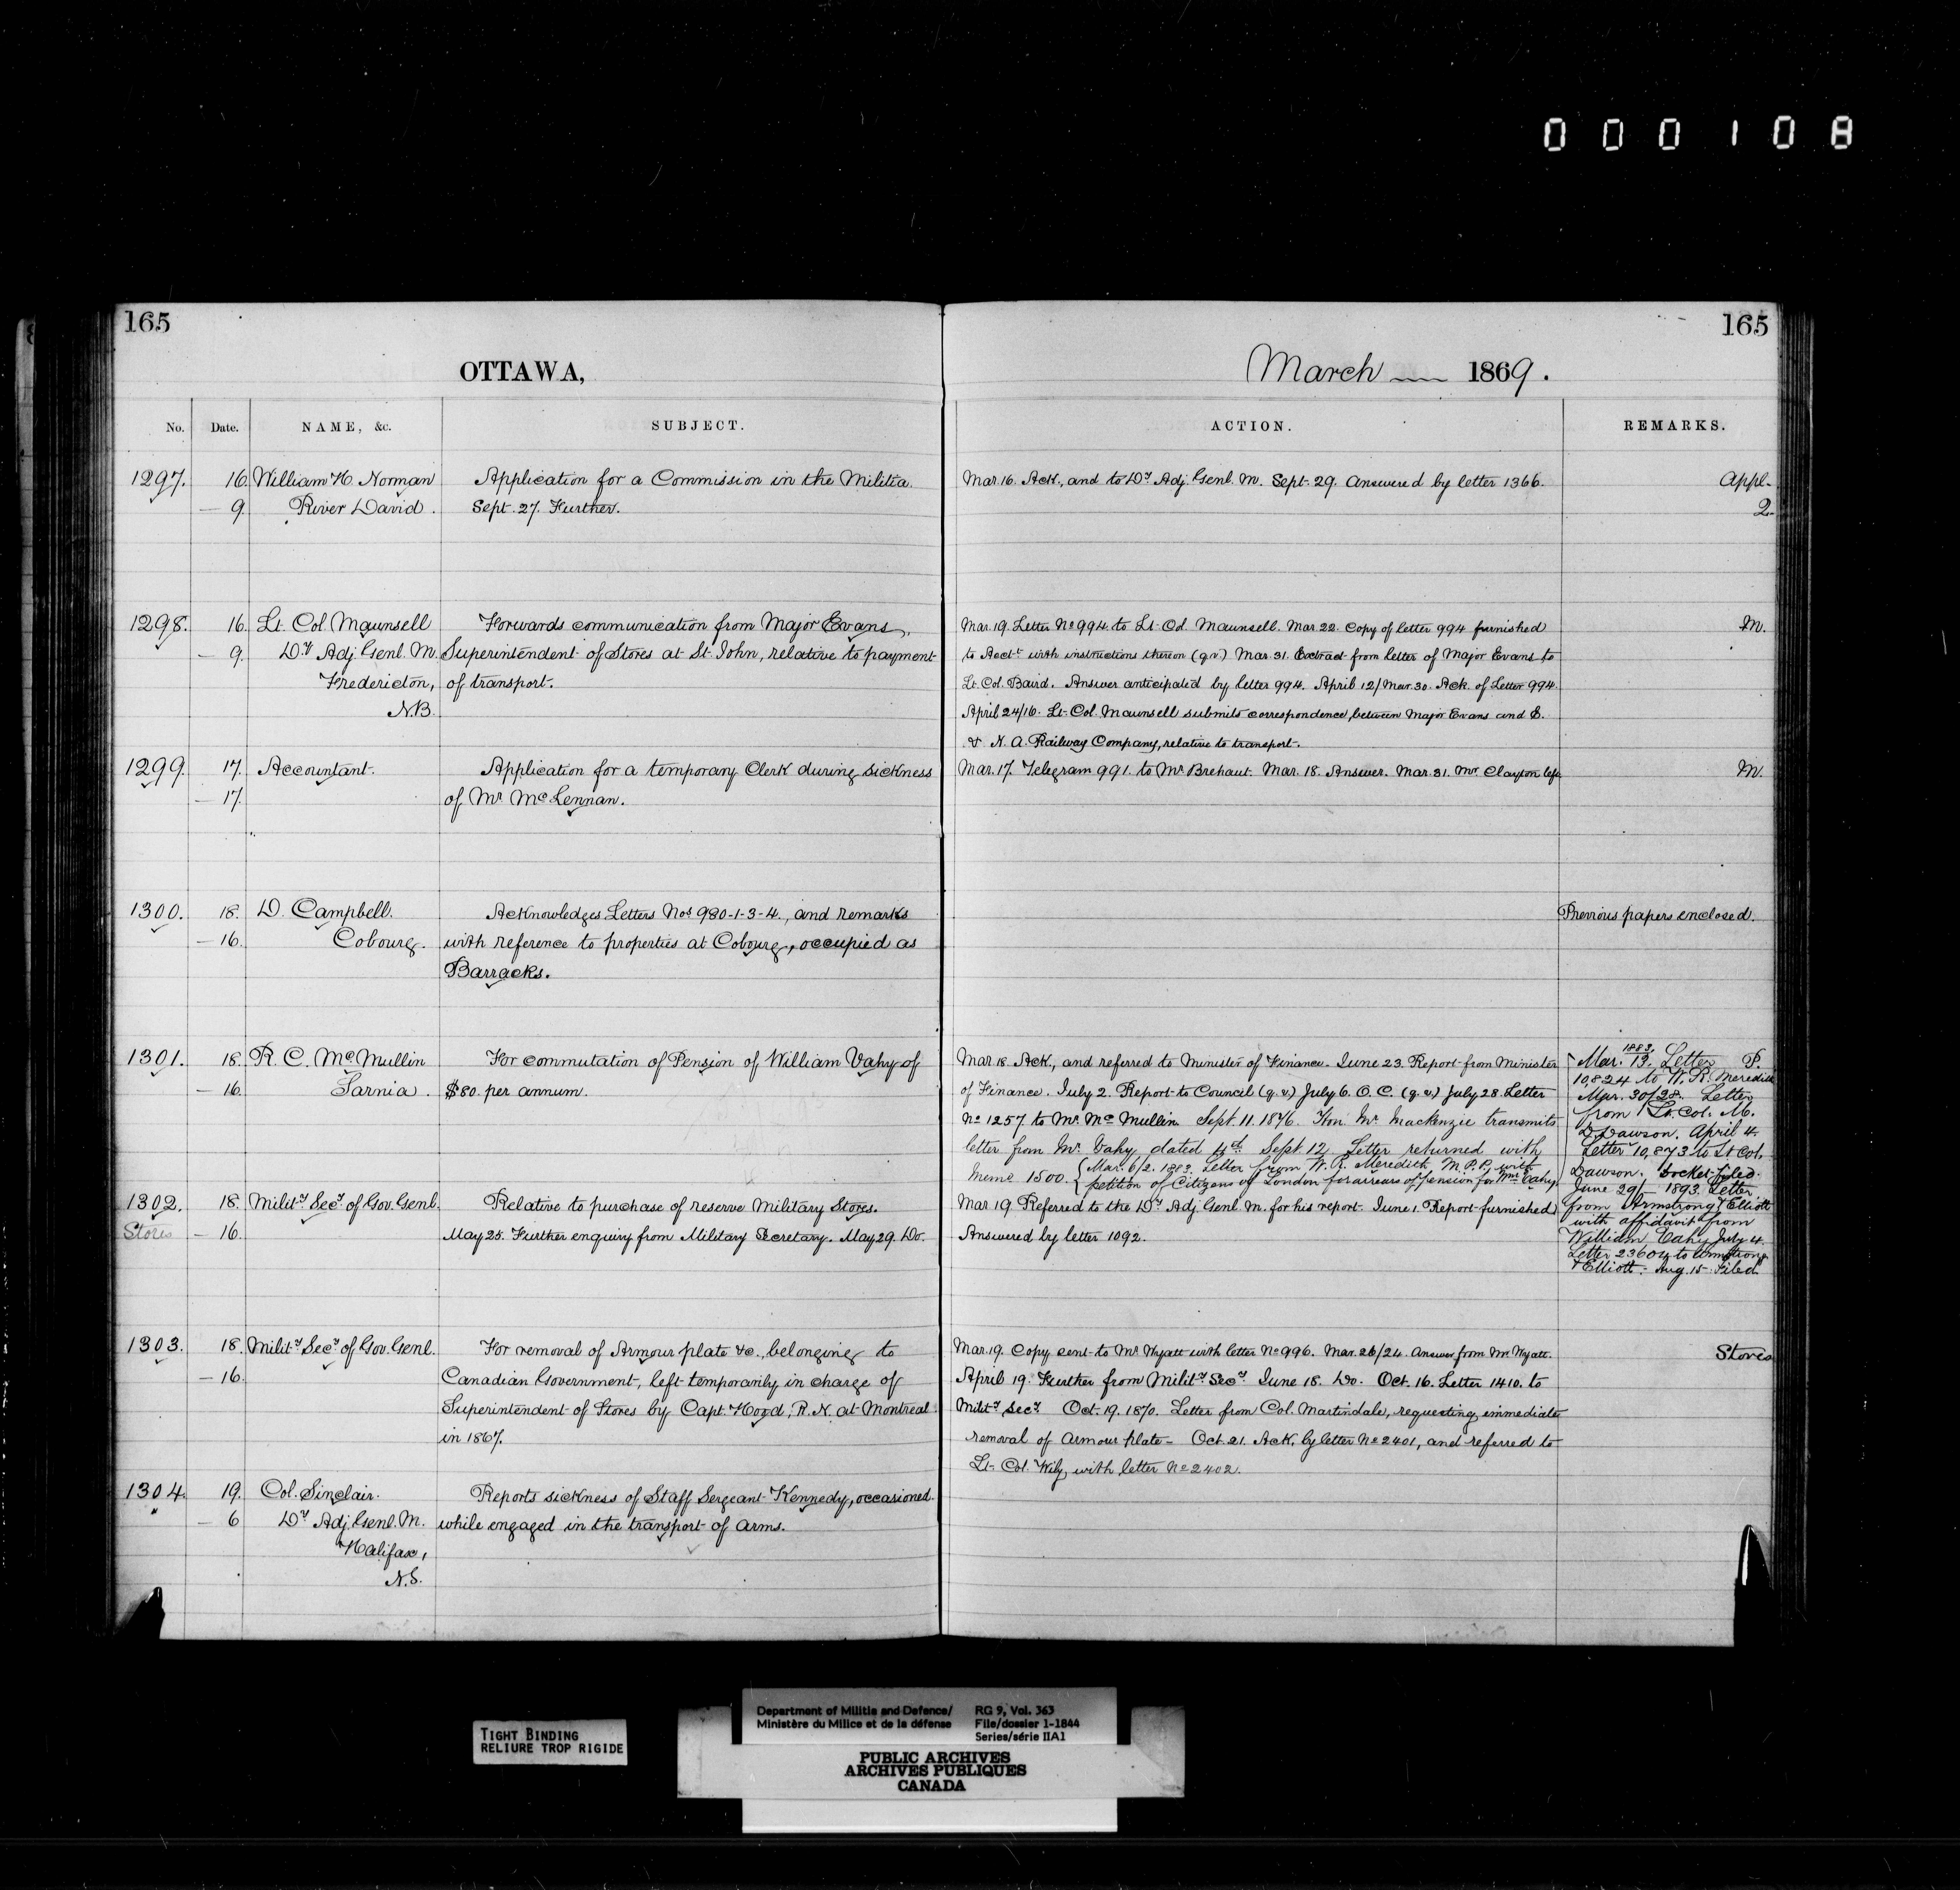 000108
165
165
OTTAWA,
March 1869.
No. Date. NAME, &c. SUBJECT. ACTION. REMARKS.
1297. 16. William H. Norman
— 9. River David.
Application for a Commission in the Militia.
Sept. 27. Further.
Mar. 16. Ack., and to Dy. Adj. Genl. M. Sept. 29. Answered by letter 1366.
Appl.
2.
1298. 16. Lt. Col. Maunsell
— 9. Dy. Adj. Genl. M.
Fredericton,
N.B.
Forwards communication from Major Evans,
Superintendent of Stores at St. John, relative to payment
of transport.
Mar. 19. Letter No. 994 to Lt. Col. Maunsell. Mar. 22. Copy of letter 994 furnished
to Acct. with instructions thereon (q.v.) Mar. 31. Extract from letter of Major Evans to
Lt. Col. Baird. Answer anticipated by letter 994. April 12/Mar. 30. Ack. of Letter 994.
April 24/16. Lt. Col. Maunsell submits correspondence, between Major Evans and E.
& N. A. Railway Company, relative to transport.
M.
1299. 17. Accountant.
— 17.
Application for a temporary Clerk during sickness
of Mr. McLennan.
Mar. 17. Telegram 991. to Mr. Brehaut. Mar. 18. Answer. Mar. 31. Mr. Clayton left.
M.
1300. 18. D. Campbell.
— 16. Cobourg.
Acknowledges Letters Nos. 980-1-3-4., and remarks
with reference to properties at Cobourg, occupied as
Barracks.
Previous papers enclosed.
1301. 18. R. C. McMullin
— 16. Sarnia.
For commutation of Pension of William Vahy of
$80. per annum.
Mar. 18. Ack., and referred to Minister of Finance. June 23. Report from Minister
of Finance. July 2. Report to Council (q.v.) July 6. O.C. (q.v.) July 28. Letter
No. 1257 to Mr. McMullin. Sept. 11. 1876. Hon. Mr. Mackenzie transmits
letter from Mr. Vahy dated Sept. 12. Letter returned with
Memo 1500. { Mar. 6/2. 1883. Letter from W. R. Meredith M.P.P. with
petition of Citizens of London for arrears of pension for Wm. Vahy.
1883.
Mar. 13. Letter P.
10,824 to W. R. Meredith
Mar. 30/28. Letter
from Lt. Col. M.
D. Dawson. April 4.
Letter 10,873 to Lt Col.
Dawson. Docket filed.
June 29/ 1893. Letter
from Armstrong & Elliott
with affidavit from
William Vahy July 4.
Letter 23604 to Armstrong
& Elliott. Aug. 15. Filed.
1302. 18. Mility. Secy. of Gov. Genl.
Stores — 16.
Relative to purchase of reserve Military Stores.
May 25. Further enquiry from Military Secretary. May 29. Do.
Mar. 19 Referred to the Dy. Adj. Genl. M. for his report. June 1. Report furnished
Answered by letter 1092.
1303. 18. Mility. Secy. of Gov. Genl.
— 16.
For removal of Armour plate &c., belonging to
Canadian Government, left temporarily in charge of
Superintendent of Stores by Capt. Hood, R.N. at Montreal
in 1867.
Mar. 19. Copy sent to Mr. Wyatt with letter No. 996. Mar. 26/24. Answer from Mr. Wyatt.
April 19. Further from Mility. Secy. June 18. Do. Oct. 16. Letter 1410. to
Mility. Secy. Oct. 19. 1870. Letter from Col. Martindale, requesting immediate
removal of Armour plate - Oct. 21. Ack. by letter No. 2401, and referred to
Lt. Col. Wily, with letter No. 2402.
Stores
1304. 19. Col. Sinclair.
— 6 Dy. Adj. Genl. M.
Halifax,
N.S.
Reports sickness of Staff Sergeant Kennedy, occasioned
while engaged in the transport of arms.
TIGHT BINDING
RELIURE TROP RIGIDE
Department of Militia and Defence/
Ministère du Milice et de la défense
RG 9, Vol. 363
File/dossier 1-1844
Series/série IIA1
PUBLIC ARCHIVES
ARCHIVES PUBLIQUES
CANADA